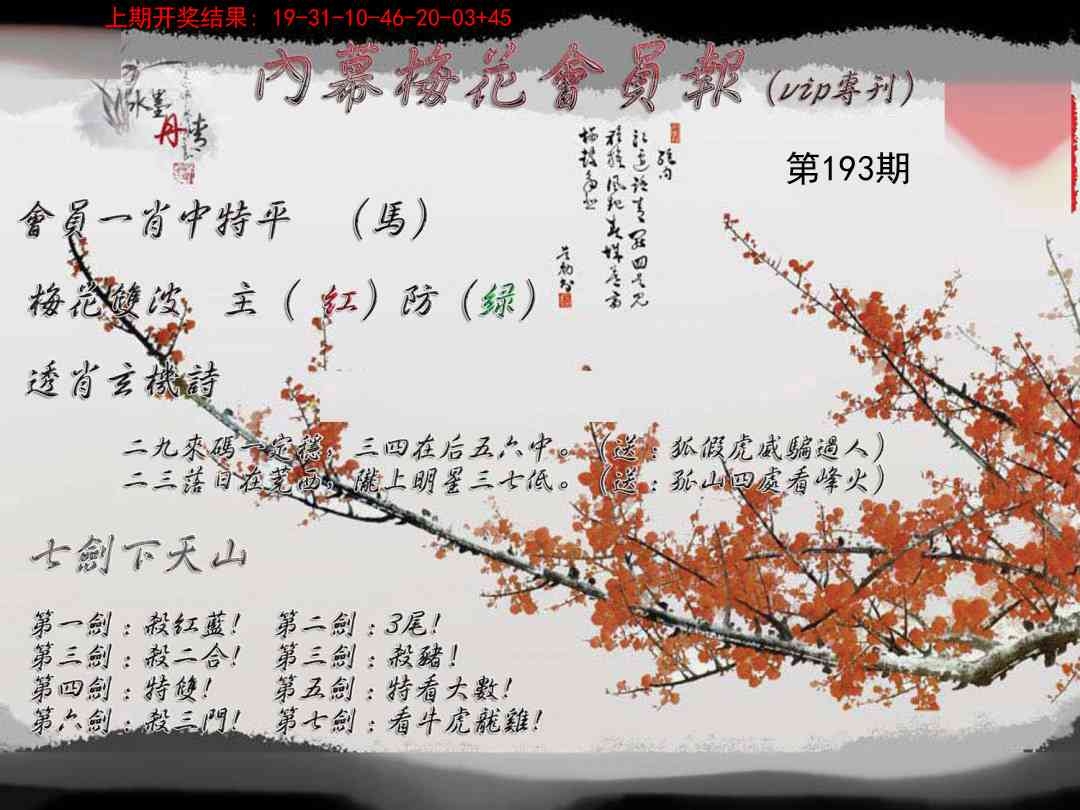 上期开奖结果: 19-31-10-46-20-03+45
內幕梅花會員報(vip專刊)
水墨
丹青
第193期
會員一肖中特平 (馬)
梅花雙波 主(紅)防(绿)
透肖玄機詩
二九來碼一定穩,三四在后五六中。(送:狐假虎威騙過人)
二三落日在荒西,隴上明星三七低。(送:孤山四處看峰火)
七劍下天山
第一劍:殺紅藍! 第二劍:3尾!
第三劍:殺二合! 第三劍:殺豬!
第四劍:特雙! 第五劍:特看大數!
第六劍:殺三門! 第七劍:看牛虎龍雞!